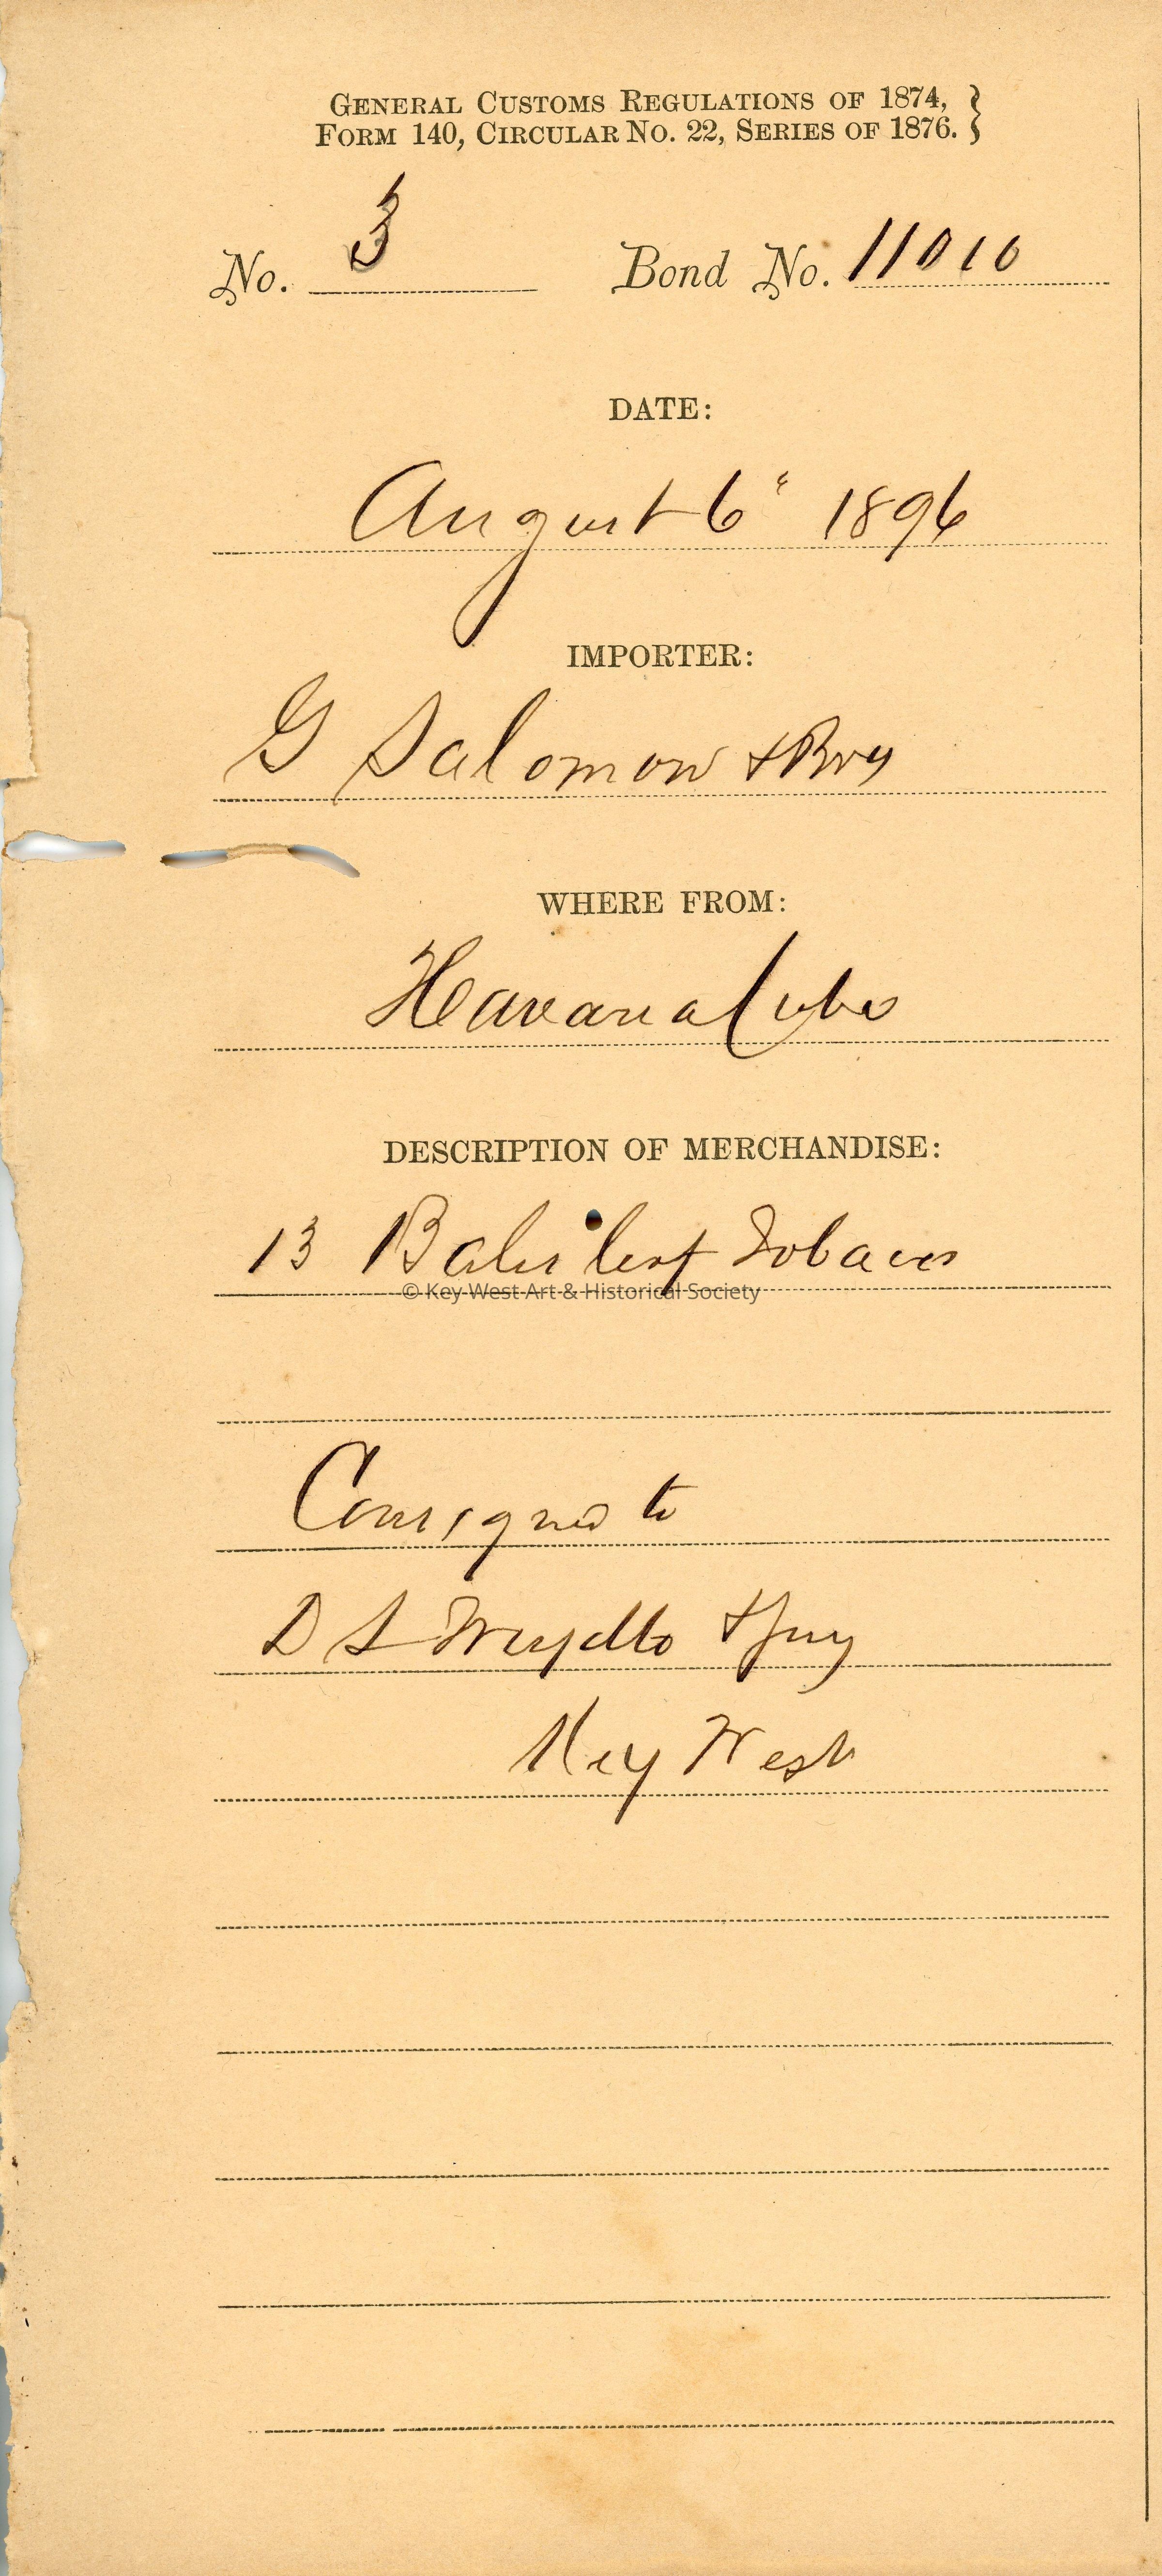 GENERAL CUSTOMS REGULATIONS OF 1874, }
FORM 140, CIRCULAR No. 22, SERIES OF 1876. }
No. 3 Bond No. 11010
DATE:
August 6" 1896
IMPORTER:
G Salomon & Bros
WHERE FROM:
Havana Cuba
DESCRIPTION OF MERCHANDISE:
13 Bales leaf Tobacco
© Key West Art & Historical Society
Consigned to
D L
Key West